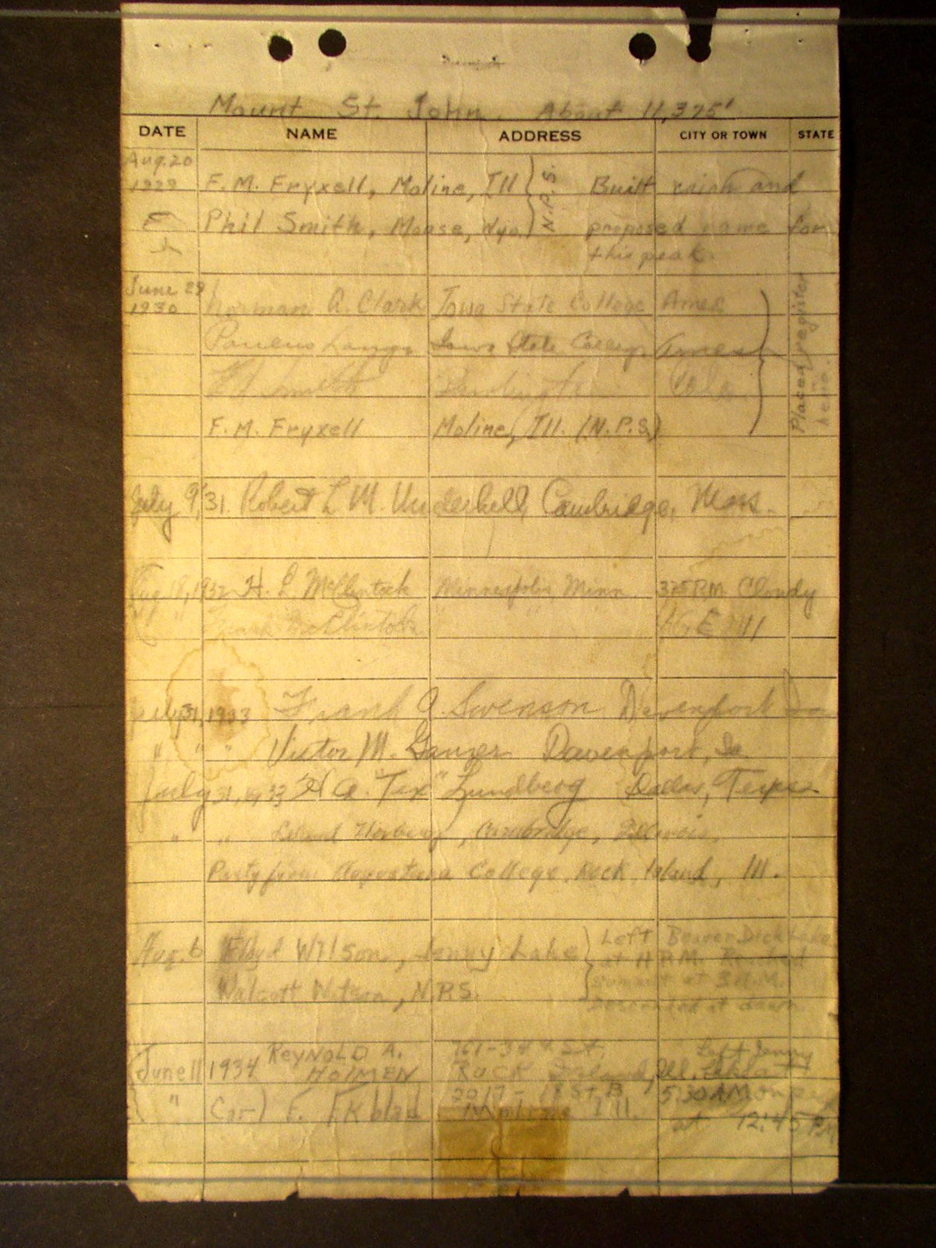 Mount St. John. About 11,375'
DATE NAME ADDRESS CITY OR TOWN STATE
Aug. 20 1929 F. M. Fryxell, Moline, Ill N.P.S. Built cairn and
Phil Smith, Moose, Wyo. proposed name for
this peak.
June 29 1930 Norman A. Clark Iowa State College Ames
Iowa State College Ames
Smith
F. M. Fryxell Moline, Ill. (N.P.S.)
Placed register here.
July 9, '31. Robert L. M. Underhill, Cambridge, Mass.
Aug 1932 H. L. McClintock Minneapolis, Minn 325 PM Cloudy
" " McClintock " "
July 31, 1933 Frank A. Swenson Davenport Ia
" " " Victor M. Davenport, Ia
July 31, 1933 H A. "Tex" Lundberg Dallas, Texas
" " Cambridge, Illinois
Party from Augustana College Rock Island, Ill.
Aug. 6 Floyd Wilson, Jenny Lake Left Beaver Dick Lake
at 11 P.M. Reached
Walcott Watson, N.P.S. summit at 3 A.M.
Descended at dawn
June 11 1934 REYNOLD A. HOLMEN 761-34th St. Rock Island, Ill. Left Jenny Lake
" Carl E. Ekblad 2017-18 St. B Moline Ill. 5:30 AM on peak
at 12:45 PM